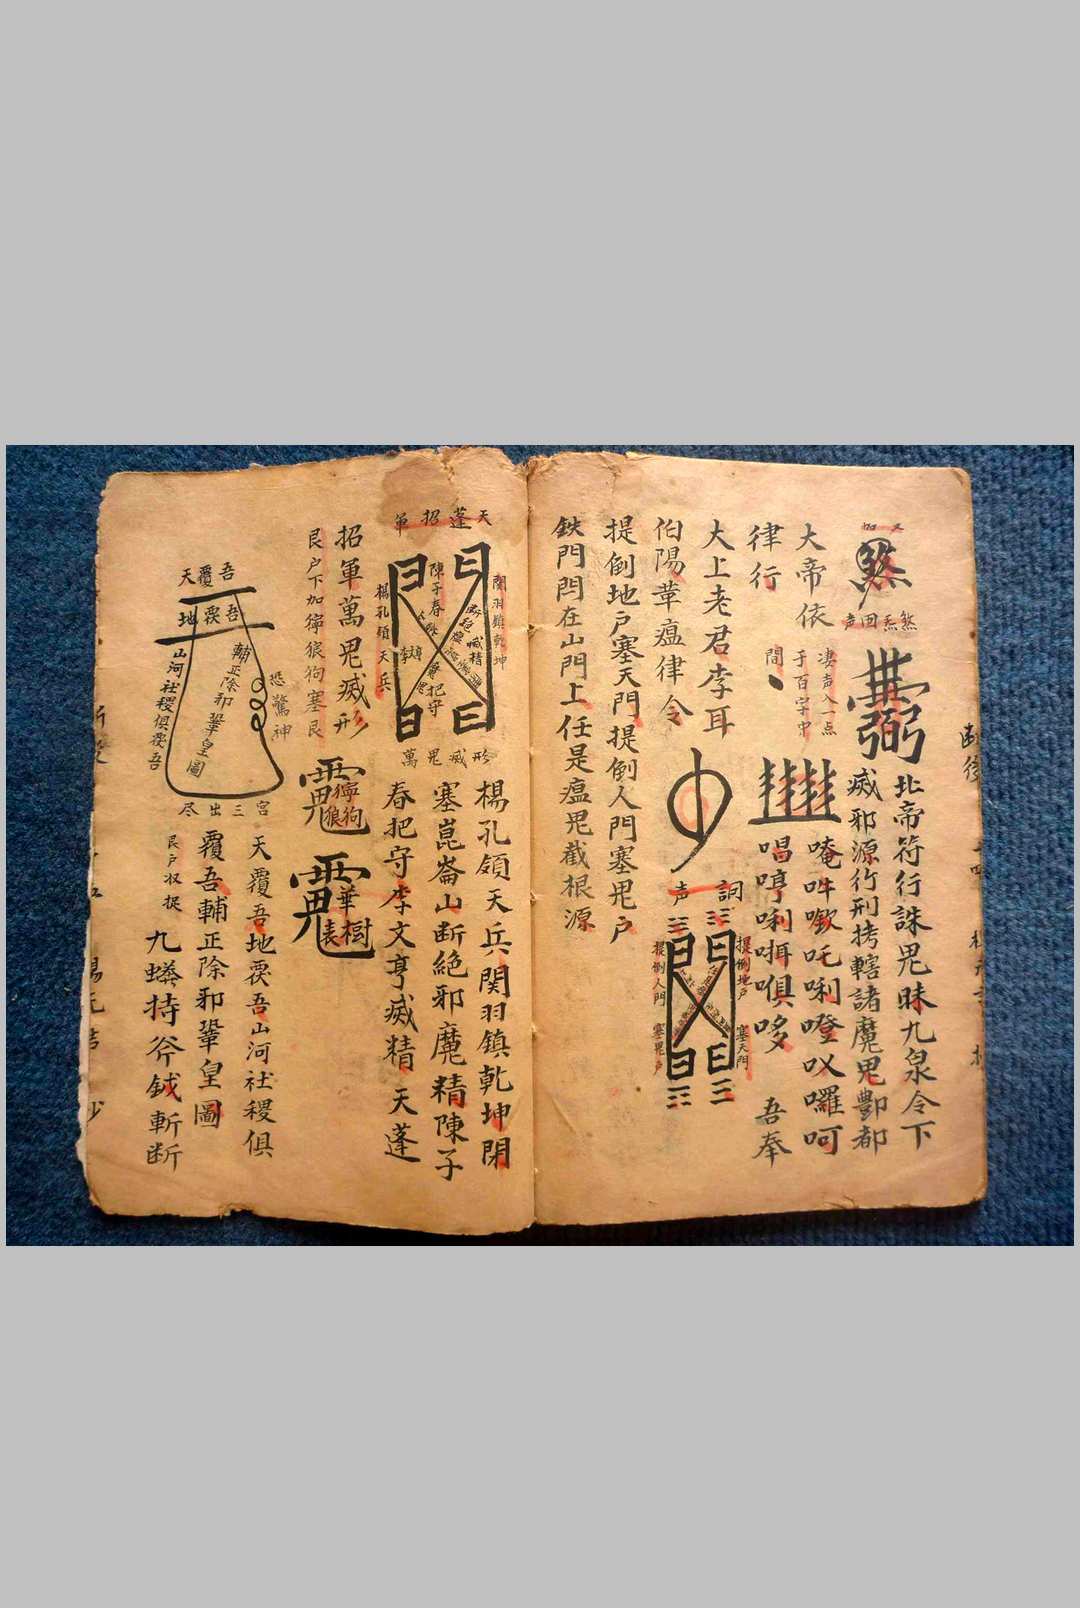 北帝符行誅鬼昧九泉令下
滅邪源行刑拷轄諸魔鬼酆都
煞炁四声
唵吽㗲吒唎噔㕛囉呵
唱哼唎𠵨㖵哆 吾奉
凄声入一点
于百字中
間
大帝依
律行
大上老君李耳
伯陽華瘟律令
詞
声
提倒地戶 塞天門
提倒人門 塞鬼戶
提倒地戶塞天門提倒人門塞鬼戶
鉄門閂在山門上任是瘟鬼截根源
天蓬招軍
關羽鎮乾坤
陳子春
把守
楊孔領天兵
形滅鬼萬
楊孔領天兵関羽鎮乾坤閉
塞崑崙山断絕邪魔精陳子
春把守李文亨滅精 天蓬
招軍萬鬼滅形
艮户下加獰狼狗塞艮
獰狗
狼
華樹
表
吾覆天
吾畏地
恐驚神
輔正除邪鞏皇圖
山河社稷俱畏吾
宮三出尽
天覆吾地畏吾山河社稷俱
覆吾輔正除邪鞏皇圖
艮户收提
九蟒持斧鉞斬断